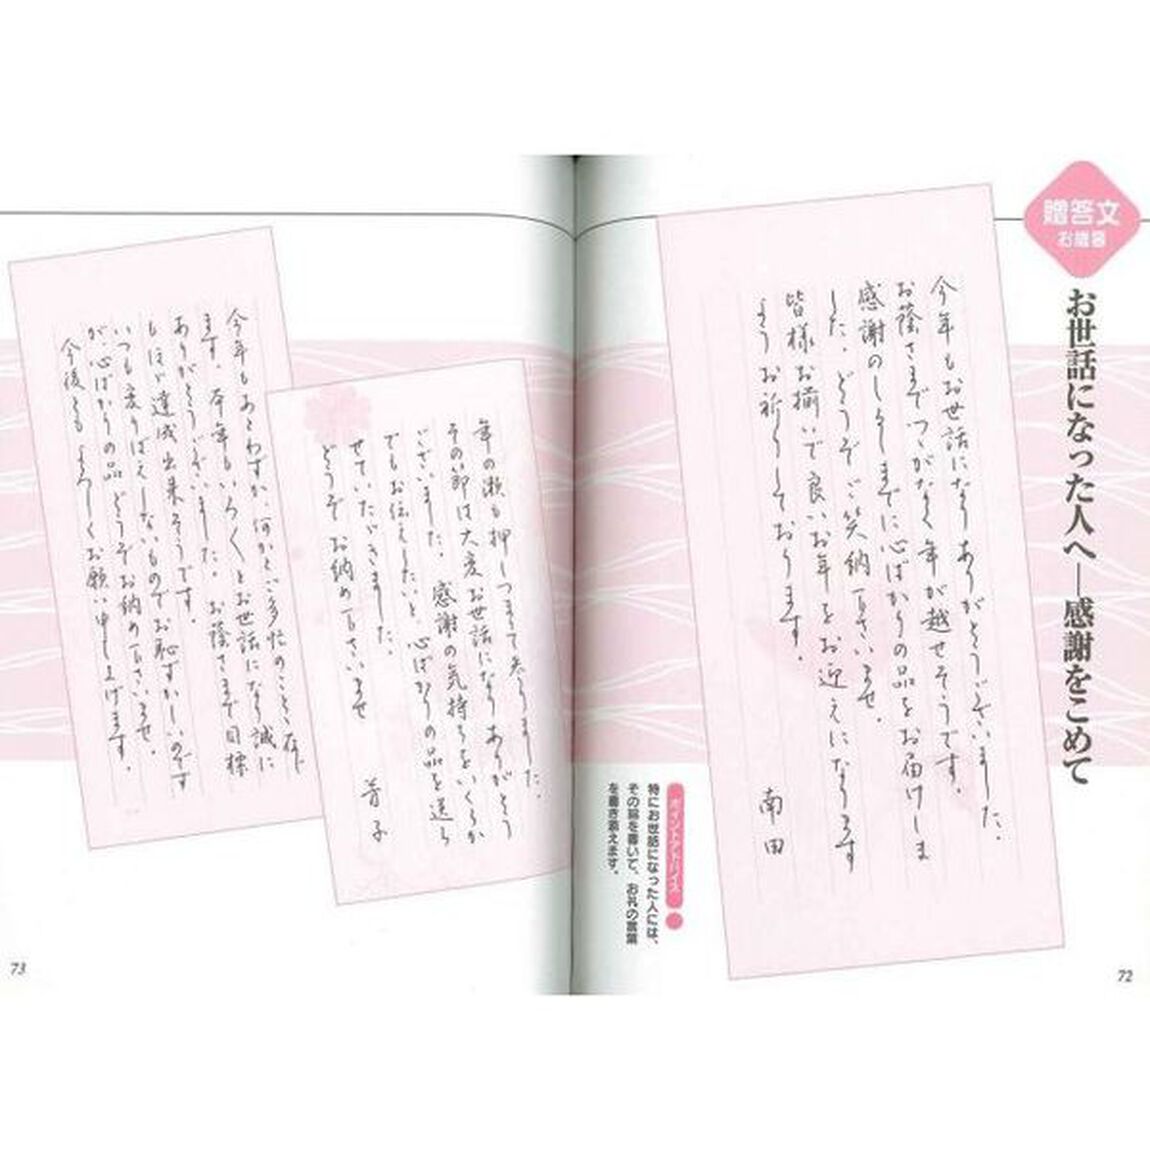 贈答文
お歳暮
お世話になった人へ―感謝をこめて
今年もお世話になりありがとうございました。
お蔭さまでつつがなく年が越せそうです。
感謝のしるしまでに心ばかりの品をお届けしま
した。どうぞご笑納下さいませ。
皆様お揃いで良いお年をお迎えになりますよ
ようお祈りしております。
南田
ポイントアドバイス
特にお世話になった人には、
その旨を書いて、お礼の言葉
を書き添えます。
72
年の瀬も押しつまって参りました。
その節は大変お世話になりありがとう
ございました。感謝の気持ちをいくらか
でもお伝えしたいと、心ばかりの品を送ら
せていただきました。
どうぞお納め下さいませ
芳子
今年もあとわずか、何かとご多忙のことと存じ
ます。本年もいろいろとお世話になり誠に
ありがとうございました。お蔭さまで目標
もほぼ達成出来そうです。
いつも変りばえしないものでお恥ずかしいのです
が、心ばかりの品 どうぞお納め下さいませ。
今後ともよろしくお願い申し上げます。
73